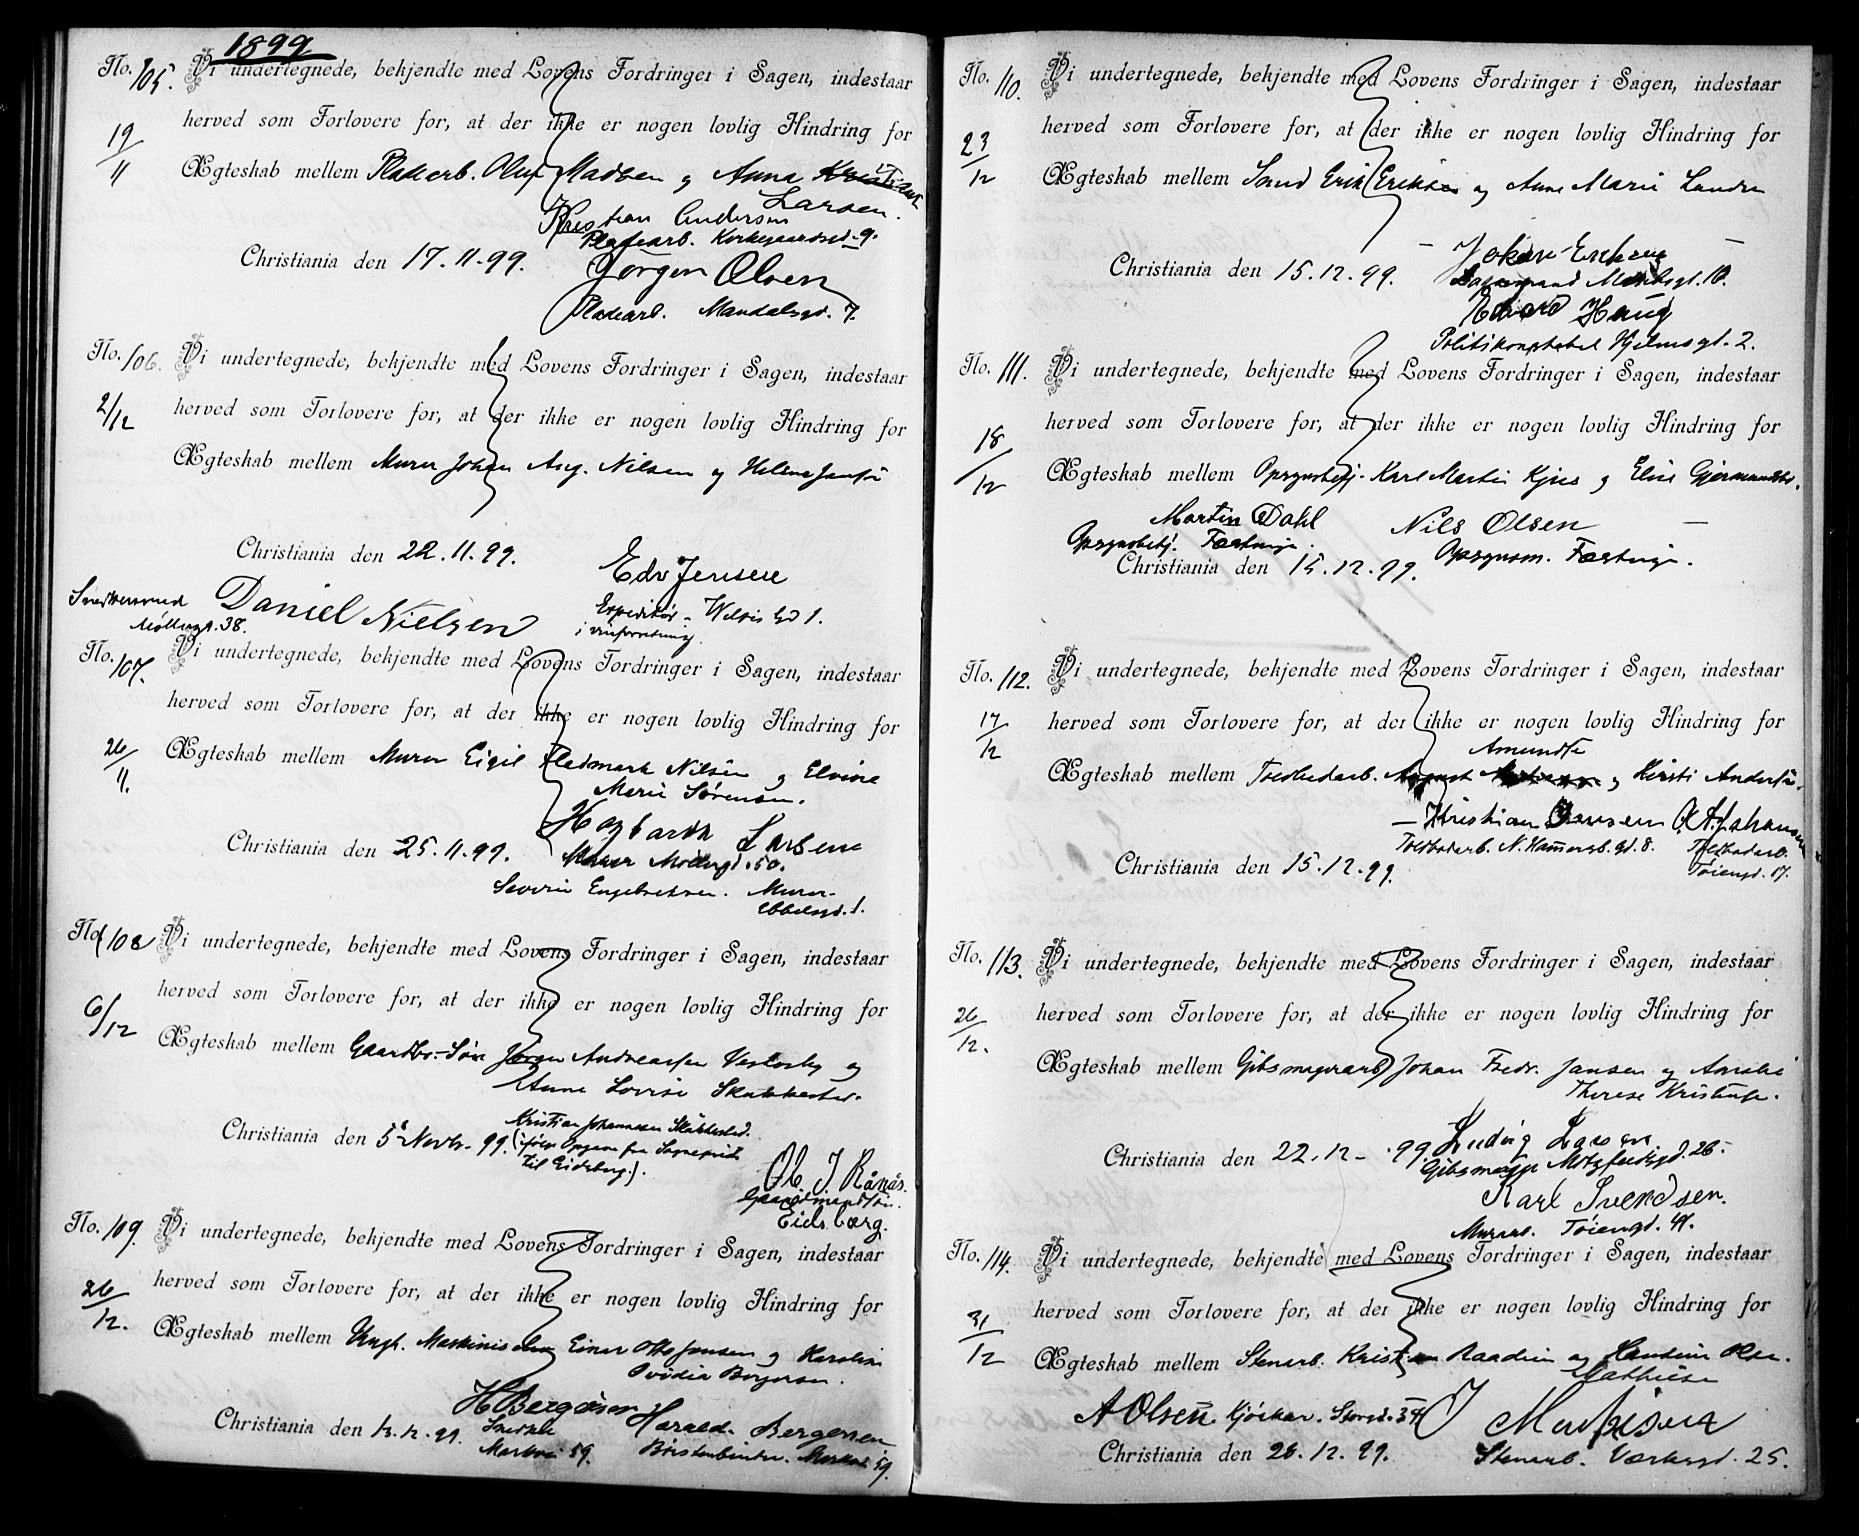 1899
No. 105. Vi undertegnede, bekjendte med Lovens Fordringer i Sagen, indestaar
herved som Forlovere for, at der ikke er nogen lovlig Hindring for
19/11
Ægteskab mellem Pladearb. Oluf Madsen og Anna
Larsen.
Kristian Andersen
Pladearb. Kirkegaardsgd. 9.
Christiania den 17.11.99.
Jörgen Olsen
Pladearb. Mandalsgd. 7.
No. 106. Vi undertegnede, bekjendte med Lovens Fordringer i Sagen, indestaar
herved som Forlovere for, at der ikke er nogen lovlig Hindring for
2/12
Ægteskab mellem Murer Johan Aug. Nilsen og Helene
Christiania den 22.11.99.
Edv Jensen
Daniel Nielsen
Møllergt. 38.
No. 107. Vi undertegnede, bekjendte med Lovens Fordringer i Sagen, indestaar
herved som Forlovere for, at der ikke er nogen lovlig Hindring for
26/11.
Ægteskab mellem Murer Eigil Fladmark Nilsen og Elvine
Marie Sørensen.
Christiania den 25.11.99.
Hagbarth Larsen
Murer Mollergd. 50.
Severin Engebretsen. Murer
No. 108 Vi undertegnede, bekjendte med Lovens Fordringer i Sagen, indestaar
herved som Forlovere for, at der ikke er nogen lovlig Hindring for
6/12
Ægteskab mellem Gaardbr.-Søn Jørgen Andreassen Vestby og
Anne Lovise
Christiania den 5 Novbr. 99.
Kristian Johannesen
til Eidsberg.).
Ole J Rånås.
Eidsberg.
No. 109. Vi undertegnede, bekjendte med Lovens Fordringer i Sagen, indestaar
herved som Forlovere for, at der ikke er nogen lovlig Hindring for
26/12.
Ægteskab mellem Ungk. Maskinist Einar Otto Jensen og Karoline
Ovidia Borgersen.
H Bergersen
Harald Bergersen
Christiania den
Snedker
Markvei 59.
Børstenbinder. Markvei 59.
No. 110. Vi undertegnede, bekjendte med Lovens Fordringer i Sagen, indestaar
herved som Forlovere for, at der ikke er nogen lovlig Hindring for
23/12
Ægteskab mellem Smed Erik Eriksen og Anne Marie
Christiania den 15.12.99.
Johan Eriksen
Edvard Haug
Politikonstabel Hjelmsgt. 2.
No. 111. Vi undertegnede, bekjendte med Lovens Fordringer i Sagen, indestaar
herved som Forlovere for, at der ikke er nogen lovlig Hindring for
18/12
Ægteskab mellem Opsynsbetj. Karl Martin og Elise
Martin Dahl
Nils Olsen
Opsynsbetj.
Opsynsm.
Christiania den 15.12.99.
No. 112. Vi undertegnede, bekjendte med Lovens Fordringer i Sagen, indestaar
herved som Forlovere for, at der ikke er nogen lovlig Hindring for
17/12
Ægteskab mellem Toldbodarb. August og Kirsti
Kristian Jensen O. A. Johansen
Toldbodarb. N. Hammersb. gd. 8. Toldbodarb.
Christiania den 15.12.99.
Töiengd. 17.
No. 113. Vi undertegnede, bekjendte med Lovens Fordringer i Sagen, indestaar
herved som Forlovere for, at der ikke er nogen lovlig Hindring for
26/12.
Ægteskab mellem Gibsmagerarb Johan Fredr. Jansen og Amalie
Therese
Christiania den 22.12 - 99.
Ludvig Larsen
Karl Svendsen.
Murarb. Töiengd. 41.
No. 114. Vi undertegnede, bekjendte med Lovens Fordringer i Sagen, indestaar
herved som Forlovere for, at der ikke er nogen lovlig Hindring for
31/12
Ægteskab mellem Stenarb. Kristian og
A Olsen. Storgd. 34
Christiania den 26.12.99.
Stenarb. Værksgd. 25.